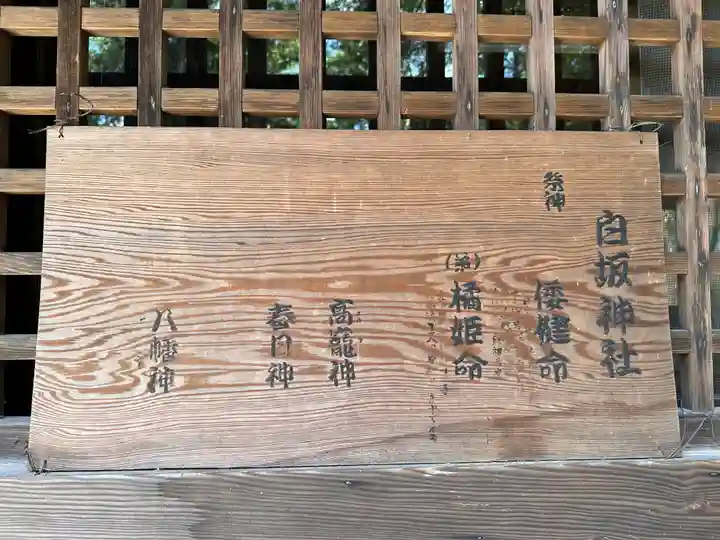 白坂神社
祭神
倭健命
橘姫命
高龗神
春日神
八幡神